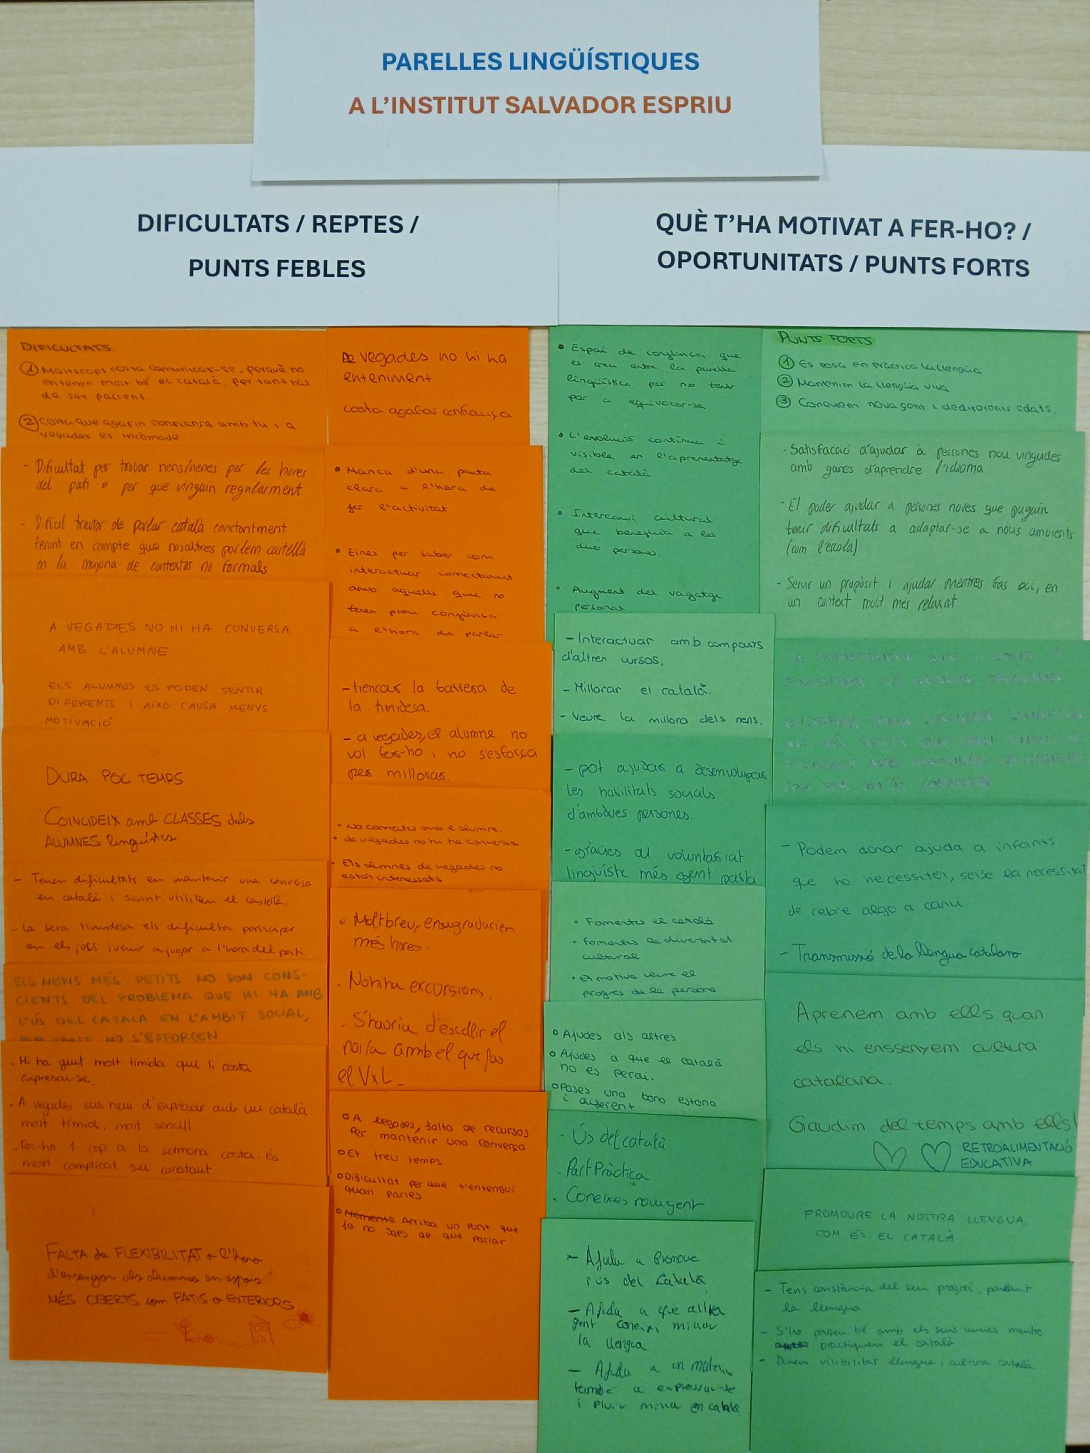 PARELLES LINGÜÍSTIQUES
A L'INSTITUT SALVADOR ESPRIU
DIFICULTATS / REPTES /
PUNTS FEBLES
DIFICULTATS
① Maltscops costa comunicar-se, perquè no
entenen molt bé el català, per tant has
de ser pacient.
② Costa que agafin confiança amb tu i a
vegades és incòmode
- Dificultat per trobar nens/nenes per les hores
del pati o per que vinguin regularment
- Difícil tractar de parlar català constantment
tenint en compte que nosaltres parlem castellà
en la majoria de contextos no formals
A VEGADES NO HI HA CONVERSA
AMB L'ALUMNE
ELS ALUMNES ES PODEN SENTIR
DIFERENTS I AIXÒ CAUSA MENYS
MOTIVACIÓ
DURA POC TEMPS
COINCIDEIX amb CLASSES dels
ALUMNES lingüístics
- Tenen dificultats en mantenir una conversa
en català i sovint utilitzen el castellà.
- La seva timidesa els dificulta participar
en els jocs i venir a jugar a l'hora del pati.
ELS NENS MÉS PETITS NO SON CONS-
CIENTS DEL PROBLEMA QUE HI HA AMB
L'ÚS DEL CATALÀ EN L'ÀMBIT SOCIAL,
PER TANT NO S'ESFORCEN
- Hi ha gent molt tímida que li costa
expressar-se.
- A vegades ens hem d'expresar amb un català
molt tímid, molt senzill
- Fer-ho 1 cop a la setmana costa. És
molt complicat ser constant.
FALTA de FLEXIBILITAT a l'hora
d'ensenyar als alumnes en espais
MÉS OBERTS com PATIS o EXTERIORS
De vegades no hi ha
enteniment
costa agafar confiança
• Manca d'una pauta
clara a l'hora de
fer l'activitat
• Eines per saber com
interactuar correctament
amb aquells que no
tenen prou confiança
a l'hora de parlar
- trencar la barrera de
la timidesa.
- a vegades, el alumne no
vol fer-ho i no s'esforça
per millorar.
• No connectes amb l'alumne.
• de vegades no hi ha conversa
- Els alumnes de vegades no
estan interessats
• Molt breu, ens agradarien
més hores.
• No hi ha excursions.
- S'hauria d'escollir el
noi/a amb el que fas
el VxL
• A vegades, falta de recursos
per mantenir una conversa
• Et treu temps
• Dificultat per que t'entengui
quan parles
• Arriba un punt que
ja no saps de que parlar
QUÈ T'HA MOTIVAT A FER-HO? /
OPORTUNITATS / PUNTS FORTS
• Espai de confiança que
es crea entre la parella
lingüística per no tenir
por a equivocar-se
• L'evolució contínua i
visible en l'aprenentatge
del català
• Intercanvi cultural
que beneficia a les
dues persones.
• Augment del vagatge
personal
- Interactuar amb companys
d'altres cursos.
- Millorar el català.
- Veure la millora dels nens.
- pot ajudar a desenvolupar
les habilitats socials
d'ambdues persones.
- gràcies al voluntariat
lingüístic més agent parla
• Fomentes el català
• Fomentes la diversitat
cultural
• Et motiva veure el
progrés de la persona
• Ajudes als altres
• Ajudes a que el català
no es perdi.
• Passes una bona estona
i diferent
· Ús del català
· Part Pràctica
. Coneixes nova gent
- Ajuda a promoure
l'ús del Català
- Ajuda a que altra
gent coneixi millor
la llengua
- Ajuda a un mateix
també a expressar-se
i parlar millor en català
PUNTS FORTS
① Es posa en pràctica la llengua
② Mantenim la llengua viva
③ Coneixem nova gent i de diferents edats.
- Satisfacció d'ajudar a persones nou vingudes
amb ganes d'aprendre l'idioma
- El poder ajudar a persones noves que puguin
tenir dificultats a adaptar-se a nous ambients
(com l'escola)
- Sentir un propòsit i ajudar mentres fas oci, en
un context molt més relaxat
- Podem donar ajuda a infants
que ho necessiten, sense la necessitat
de rebre algo a canvi.
- Transmissió de la llengua catalana
Aprenem amb ells quan
els hi enssenyem cultura
catalana.
Gaudim del temps amb ells!
RETROALIMENTACIÓ
EDUCATIVA
PROMOURE LA NOSTRA LLENGUA,
COM ÉS EL CATALÀ
- Tens constància del seu progrés, parlant
la llengua
- S'ho passen bé amb els seus amics mentre
practiquen el català
- Donem visibilitat llengua i cultura català